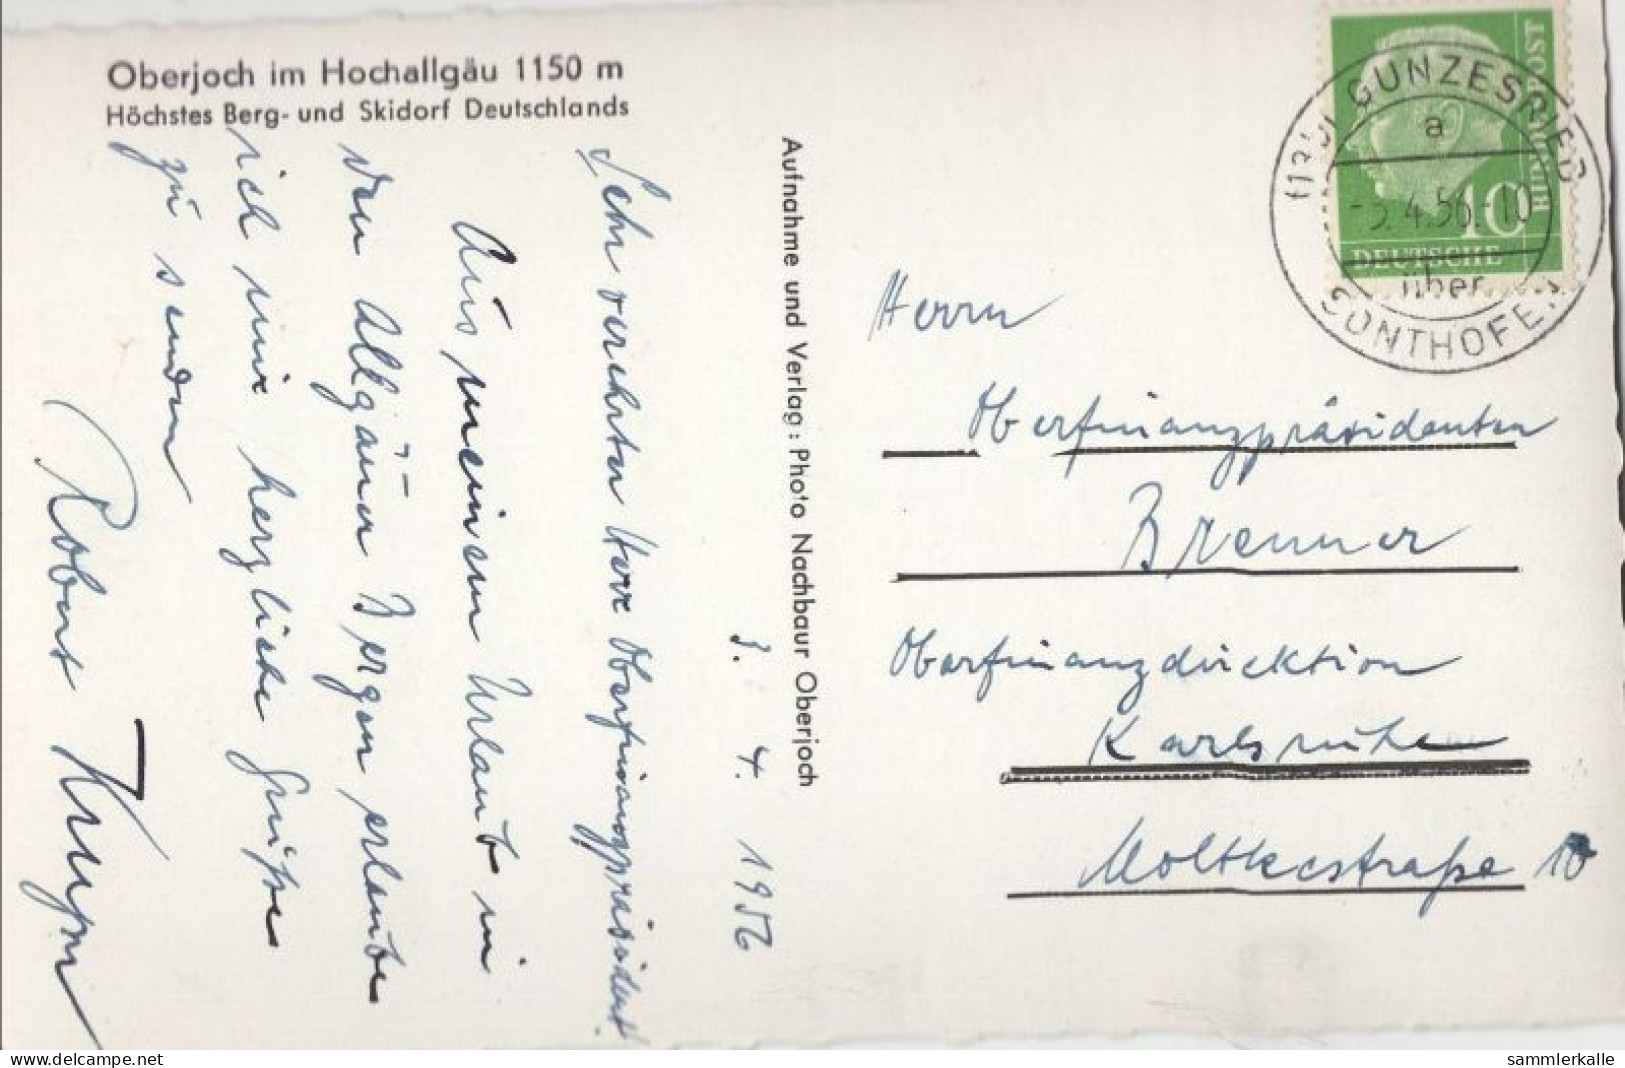 Oberjoch im Hochallgäu 1150 m
Höchstes Berg- und Skidorf Deutschlands
3. 4. 1956
Sehr verehrter Herr Oberfinanzpräsident
Aus meinem Urlaub in
den Allgäuer Bergen erlaube
ich mir herzliche Grüße
zu senden
Robert
Aufnahme und Verlag: Photo Nachbaur Oberjoch
GUNZESRIED
a
-5.4.56.-10
über
SONTHOFEN
DEUTSCHE
BUNDESPOST
10
Herrn
Oberfinanzpräsidenten
Brenner
Oberfinanzdirektion
Karlsruhe
Moltkestraße 10
www.delcampe.net
sammlerkalle